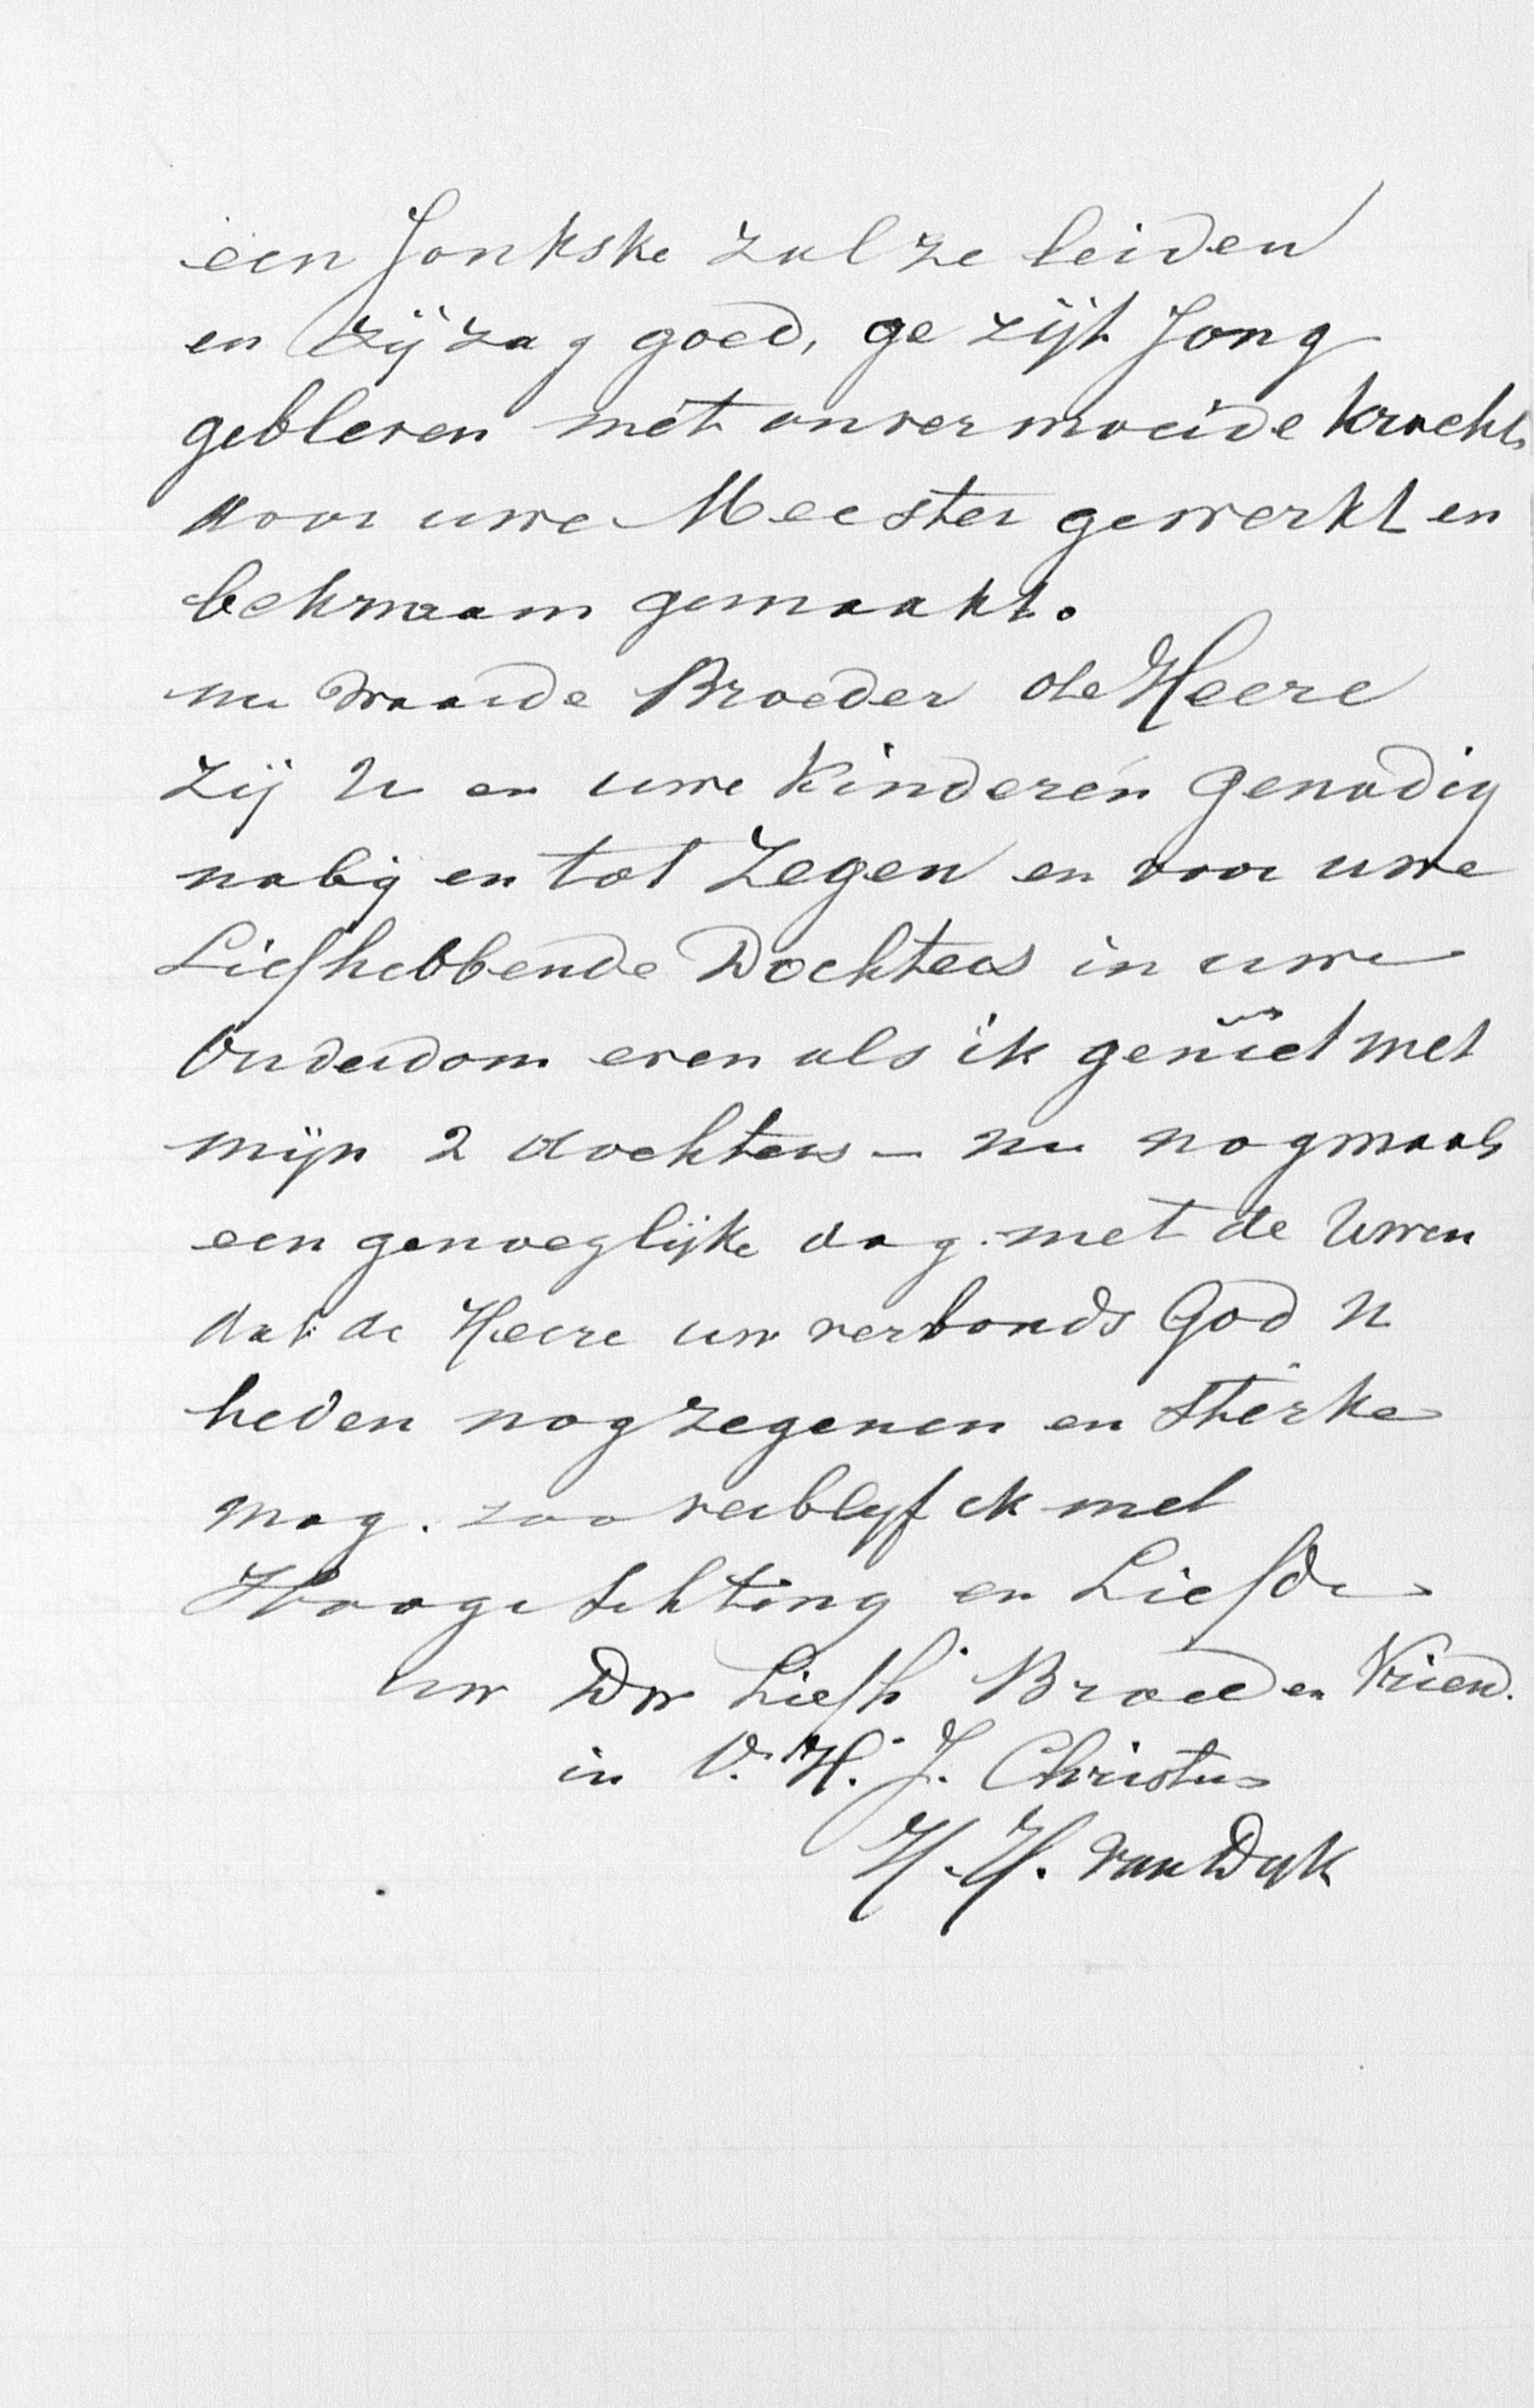 een Jonkske zal ze leiden
en zij zag goed, ge zijt Jong
gebleven met onvermoeide kracht
door uwe Meester gewerkt en
bekwaam gemaakt.
nu waarde Broeder de Heere
zij U en uwe Kinderen genadig
nabij en tot Zegen en voor uwe
Liefhebbende Dochters in uwe
Ouderdom even als ik geniet met
mijn 2 dochters - nu nogmaals
een genoeglijke dag met de Uwen
dat de Heere uw verbonds God U
heden nog zegenen en Sterke
mag. zoo verblyf ik met
Hoogachting en Liefde
uw Dw Liefh Broed en Vriend.
in d. H. J. Christus
H. H. van Dyk